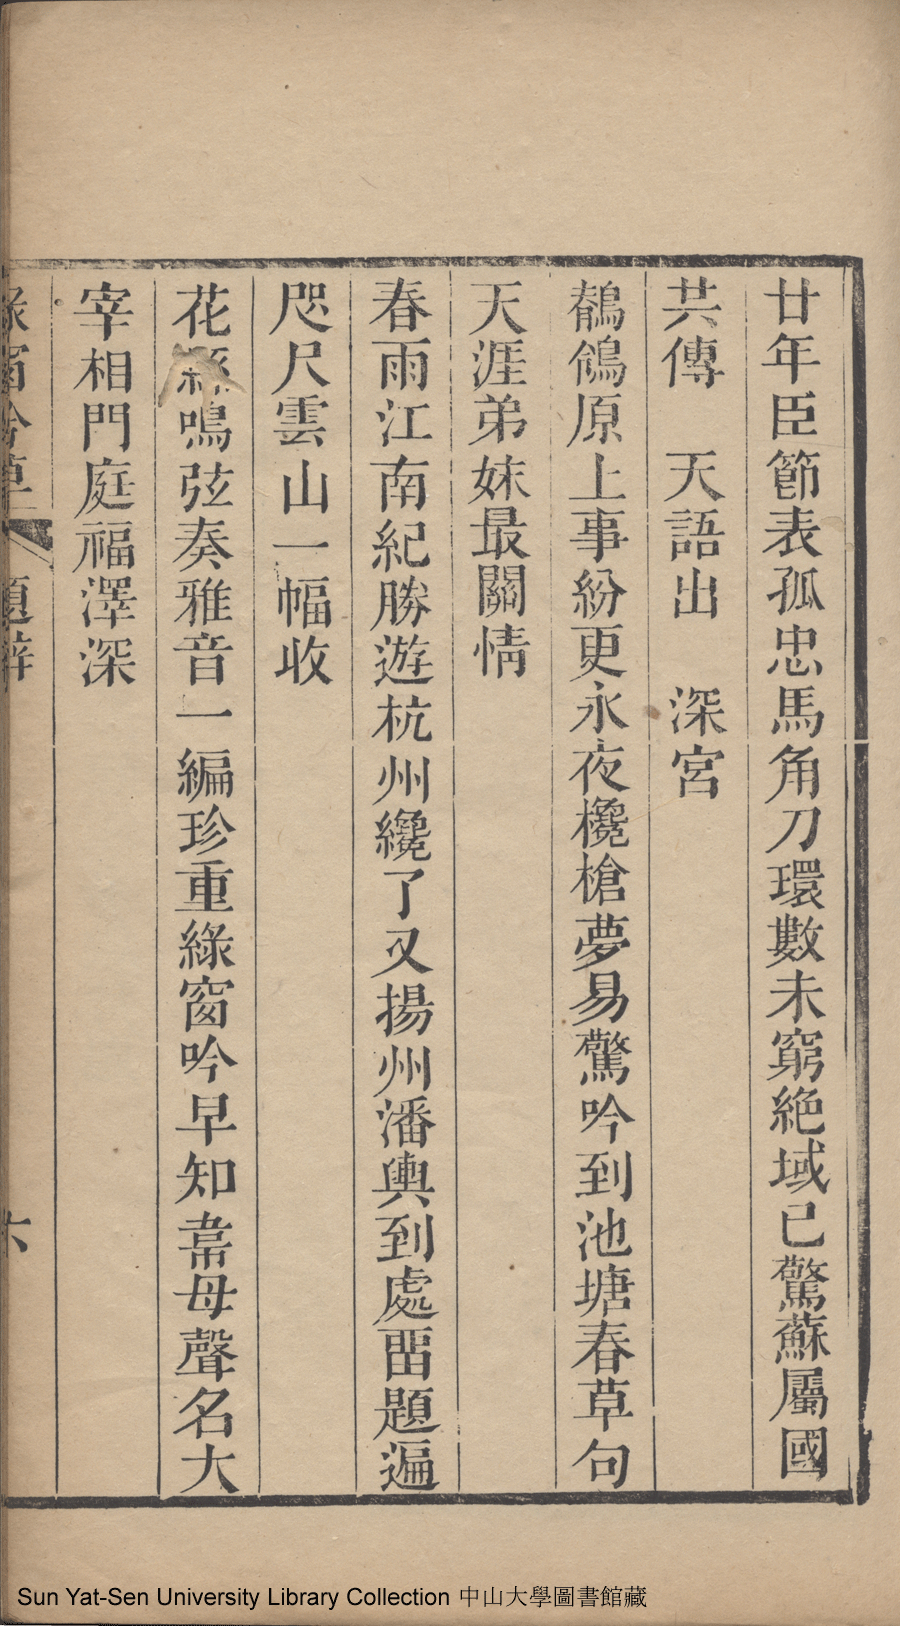 廿年臣節表孤忠馬角刀環數未窮絶域已驚蘇屬國
共傳　天語出　深宮
鶺鴒原上事紛更永夜欃槍夢易驚吟到池塘春草句
天涯弟妹最關情
春雨江南紀勝遊杭州纔了又揚州潘輿到處畱題遍
咫尺雲山一幅收
花 鳴弦奏雅音一編珍重綠窗吟早知韋母聲名大
宰相門庭福澤深
題辭
六
Sun Yat-Sen University Library Collection 中山大學圖書館藏